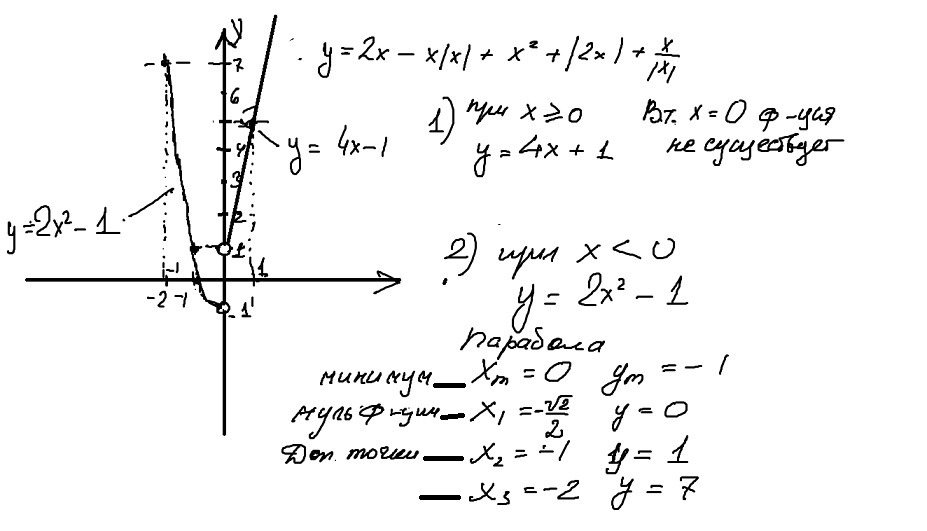 y = 2x - x|x| + x² + |2x| + x/|x|
1) при x ≥ 0
y = 4x + 1
В т. x = 0 ф-ция
не существует
2) при x < 0
y = 2x² - 1
Парабола
минимум — xₘ = 0 yₘ = -1
нуль ф-ции — x₁ = -√2/2 y = 0
Доп. точки — x₂ = -1 y = 1
— x₃ = -2 y = 7
y
7
6
4
3
2
1
-1
-2 -1
1
-1
y = 4x-1
y = 2x² - 1